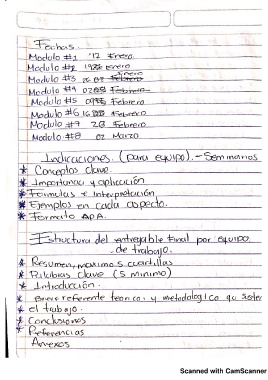 Fechas
Modulo #1 12 Enero
Modulo #2 19 Enero
Modulo #3 26 Enero
Modulo #4 02 Febrero
Modulo #5 09 Febrero
Modulo #6 16 Febrero
Modulo #7 23 Febrero
Modulo #8 02 Marzo
Indicaciones. (para equipo).- Seminarios
* Conceptos clave.
* Importancia y aplicación
* Fórmulas e Interpretación
* Ejemplos en cada aspecto.
* Formato APA.
Estructura del entregable final por equipo
de trabajo.
* Resumen, maximo 5 cuartillas
* Palabras clave (5 minimo)
* Introducción.
* Breve referente teorico y metodologico
* el trabajo.
* Conclusiones
* Referencias
Anexos
Scanned with CamScanner